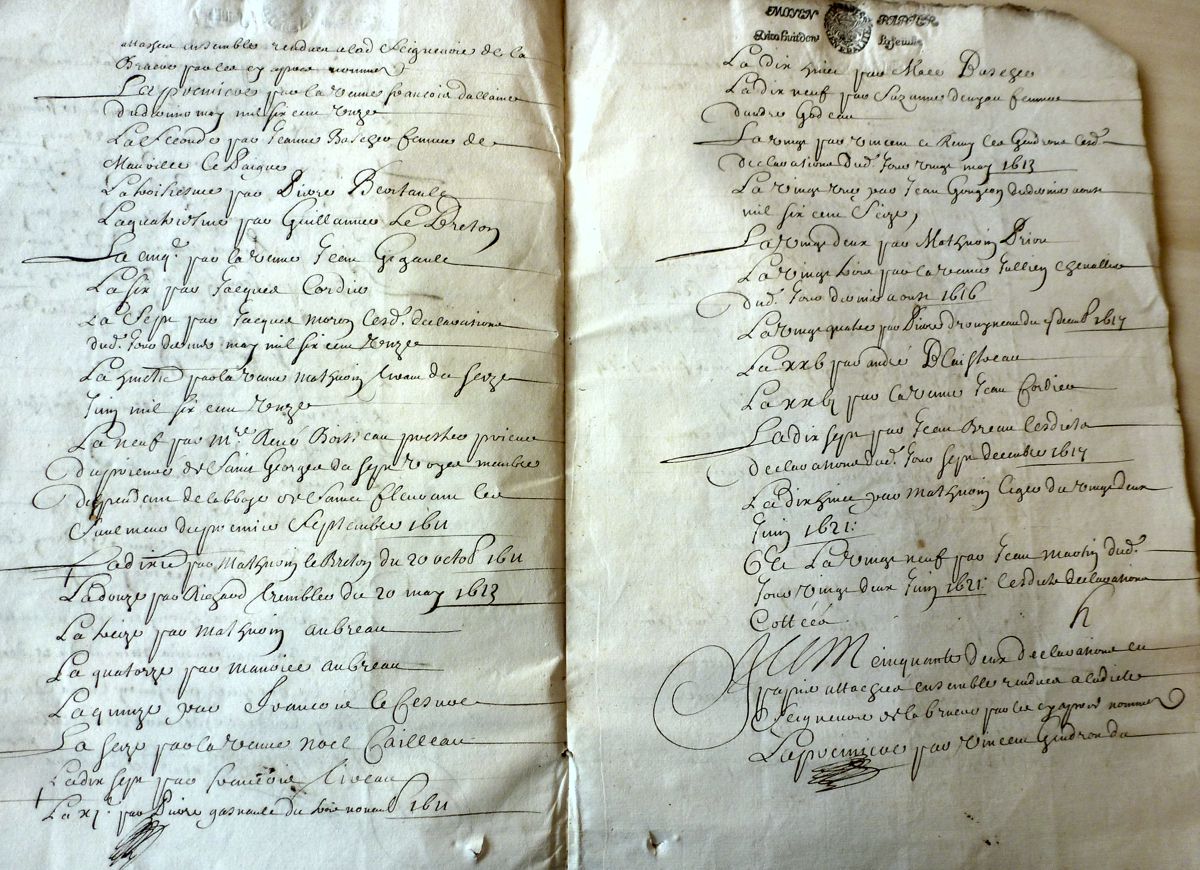 attachez ensemble rendues a lad Seigneurie de la
Bracve par les cy apres nommez
La premiere par la veufve francois dallance
du dernier may mil six cens Unze
La seconde par Jeanne Basezee femme de
Maurille Le
La troisiesme par Pierre Bertault
La quatriesme par Guillaume Le Breton
La cinq.e par la veufve Jean Gigault
La six par Jacques Cordier
La sept par Jacques moron lesd. declarations
dud. Jour dernier may mil six cens Unze
La huictie par la veufve Mathurin Liveau du seize
Juin mil six cens Unze
La neuf par M.re René Boisseau prestre prieur
du prieuré de Saint Georges du sept voyes membre
dependant de labbaye de Saint flourant les
Saulmeur du premier Septembre 1611
La dixie par Mathurin le Breton du 20 octob 1611
La douze par Richard Trembler du 20 may 1613
La treize par Mathurin aubreau
La quatorze par Maurice aubreau
La quinze par Francois le
La seize par la veufve noel Cailleau
La dix sept par francoise Liveau
La xj. par Pierre gasnault du trois novemb 1611
MOYEN PAPIER
La dix huict par Mace Basezee
La dix neuf par Suzanne femme
dandre Godeau
La vingt par Vincent et Remy les Gendrons lesd.
declarations dud. Jour vingt may 1613
La vingt une par Jean Gougeon du dernier aoust
mil six cens Seize
La vingt deux par Mathurin Driou
La vingt trois par la veufve Jullien Chevallier
dud. Jour dernier aoust 1616
La vingt quatre par Pierre Drougneau du 7 decemb 1617
La xxv par andré Blaisteau
La xxvj par la veufve Jean Cordier
La dix sept par Jean Breau lesdictes
declarations dud. Jour sept decembre 1617
La dix huict par Mathurin Leger du vingt deux
Juin 1621:
Et La vingt neuf par Jean Martin dud.
Jour vingt deux Juin 1621: lesdictes declarations
Cottées h
Item cinquante deux declarations en
papier attachees ensemble rendues a ladicte
Seigneurie de la bracve par les cy apres nommez
La premiere par Vincent Gendron du